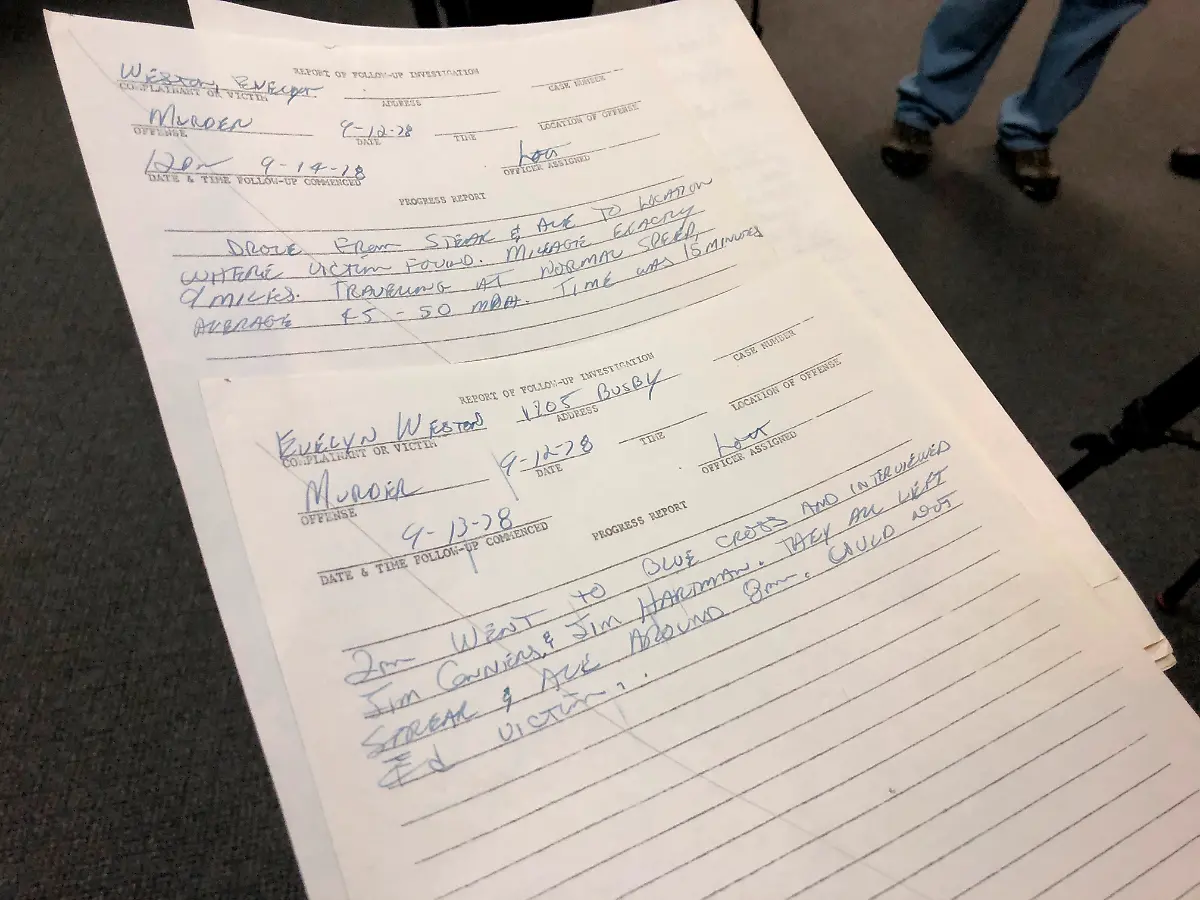 REPORT OF FOLLOW-UP INVESTIGATION
WESTON, EVELYN
COMPLAINANT OR VICTIM ADDRESS CASE NUMBER
MURDER 9-12-78
OFFENSE DATE TIME LOCATION OF OFFENSE
12pm 9-14-78
DATE & TIME FOLLOW-UP COMMENCED OFFICER ASSIGNED
PROGRESS REPORT
DROVE FROM STEAK & ALE TO LOCATION
WHERE VICTIM FOUND. MILEAGE EXACTLY
9 MILES. TRAVELING AT NORMAL SPEED,
AVERAGE 45-50 MPH. TIME WAS 15 MINUTES
REPORT OF FOLLOW-UP INVESTIGATION
EVELYN WESTON 1205 BUSBY
COMPLAINANT OR VICTIM ADDRESS CASE NUMBER
MURDER 9-12-78
OFFENSE DATE TIME LOCATION OF OFFENSE
9-13-78
DATE & TIME FOLLOW-UP COMMENCED OFFICER ASSIGNED
PROGRESS REPORT
2pm WENT TO BLUE CROSS AND INTERVIEWED
JIM CONNIERS & JIM HARTMAN. THEY ALL LEFT
STEAK & ALE AROUND 8pm. COULD NOT
VICTIM..